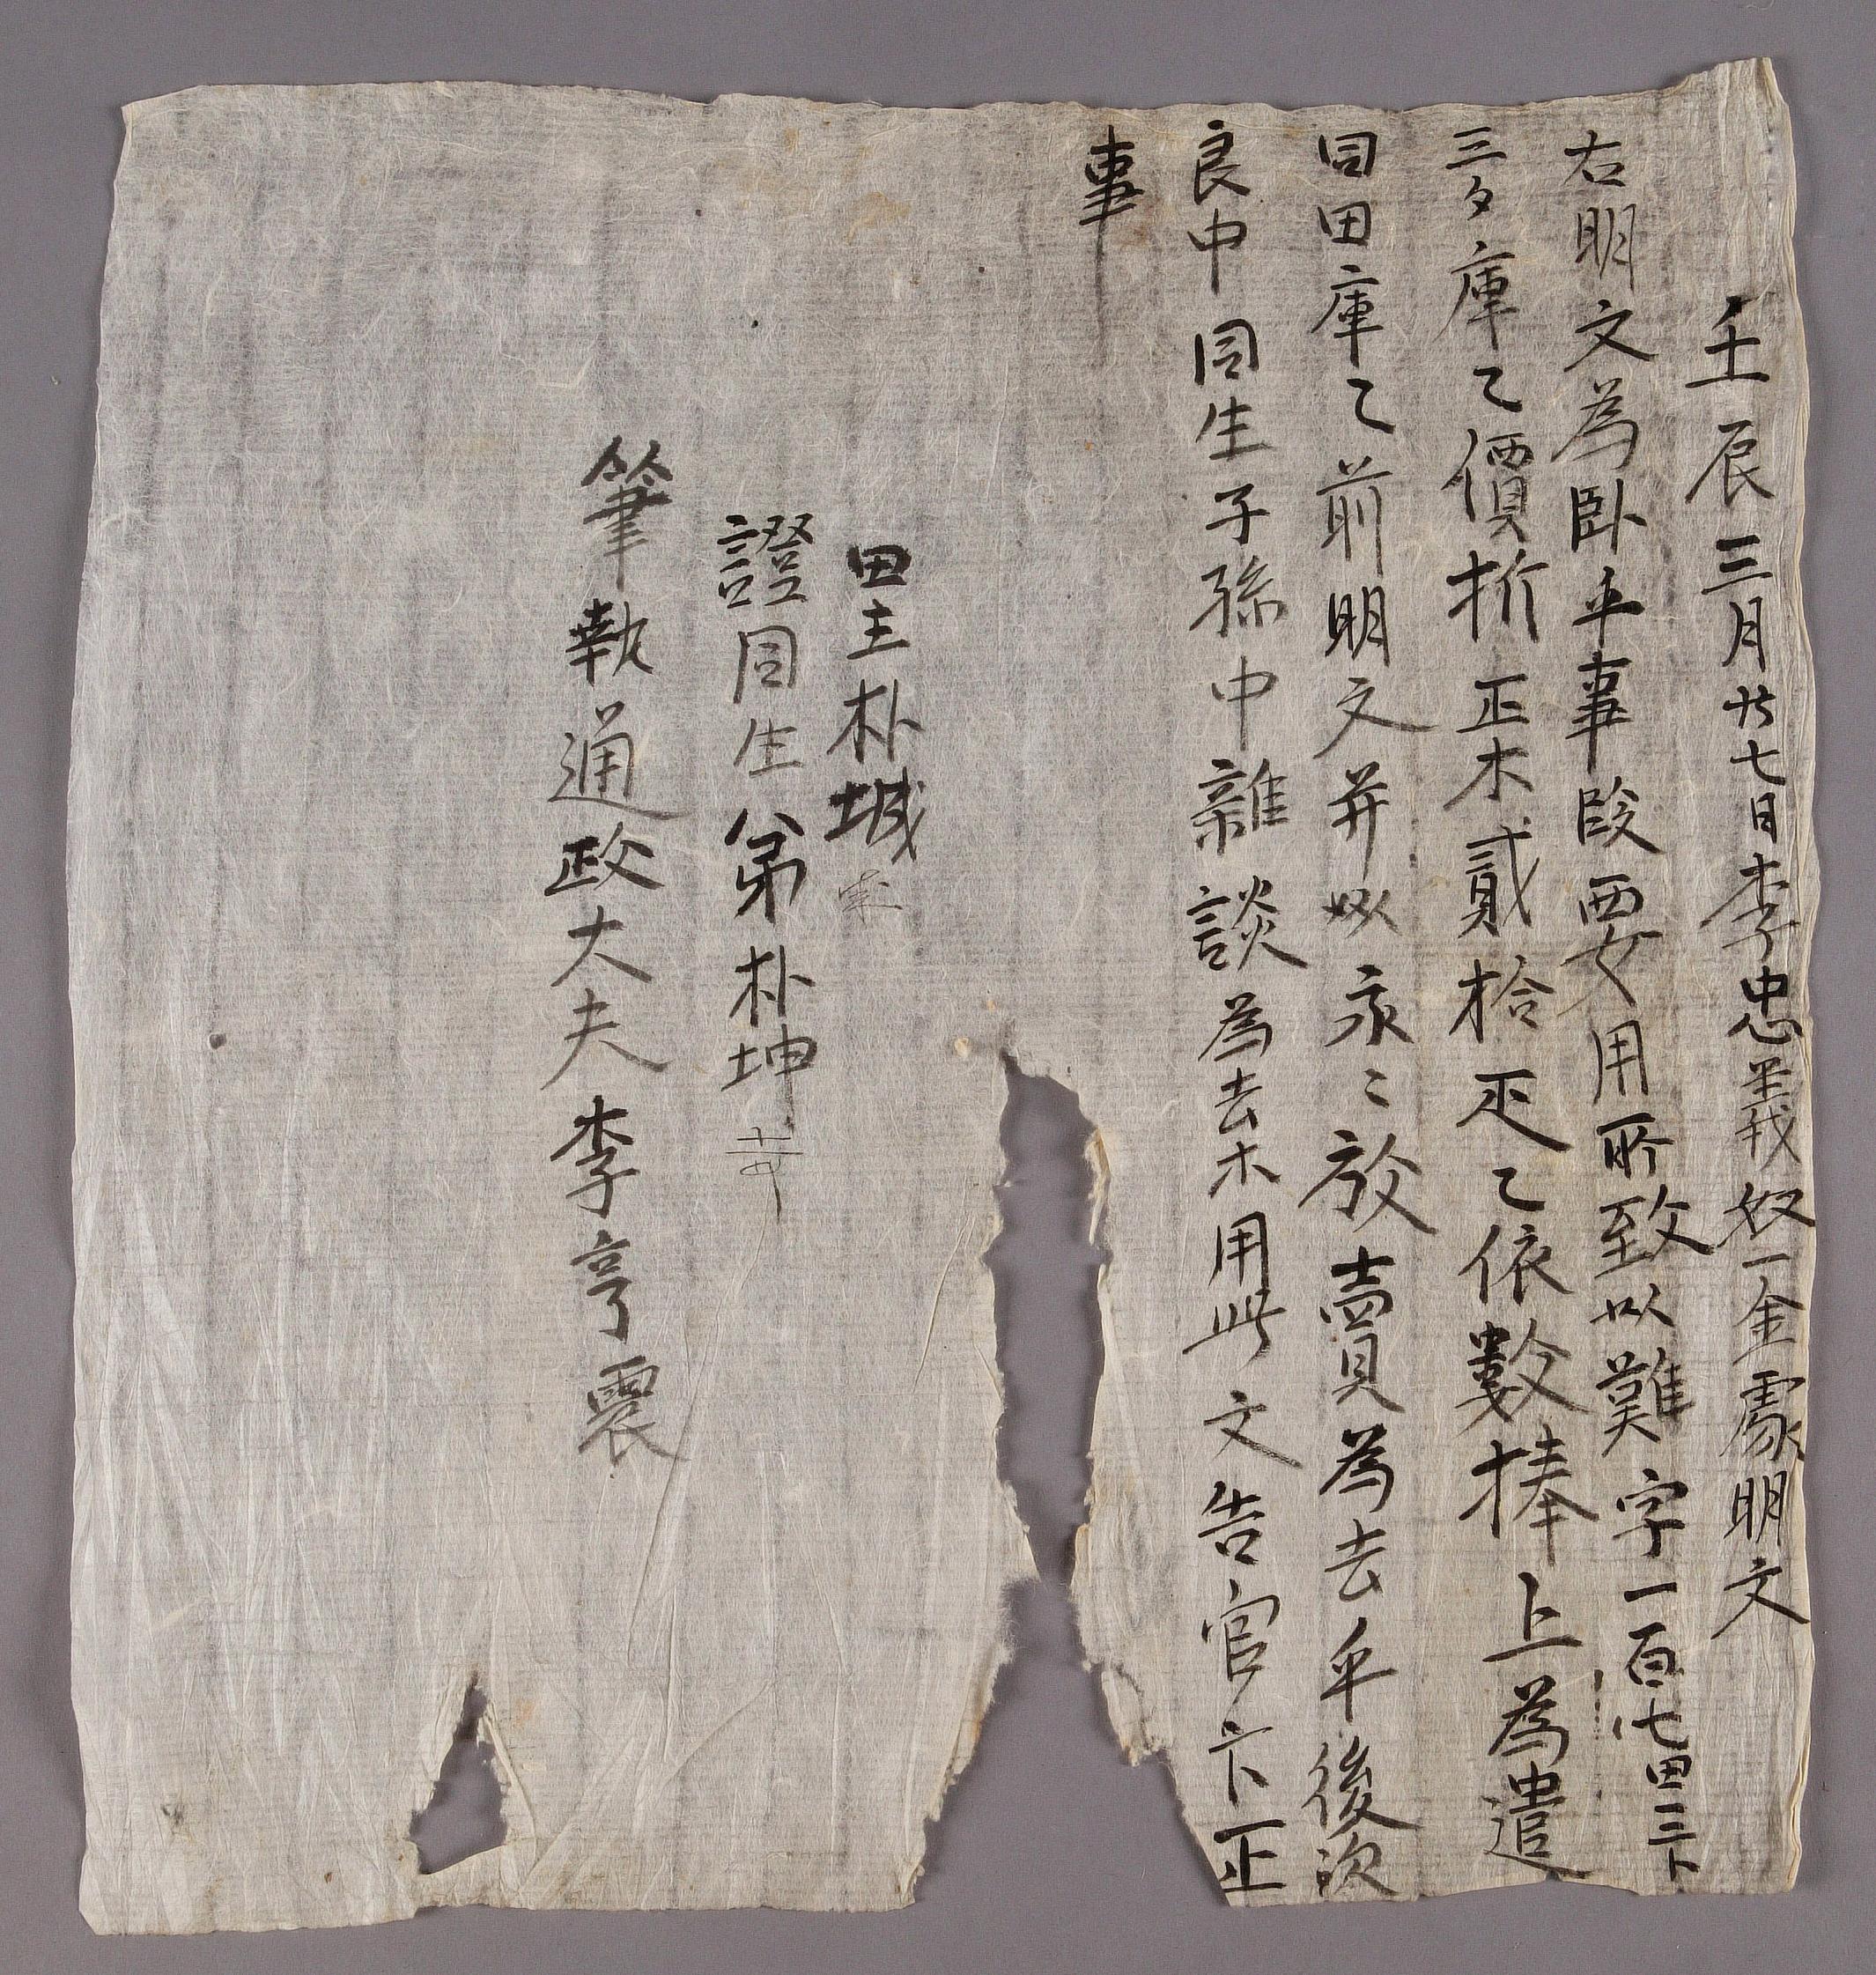 壬辰三月廿七日李忠義奴一金處明文
右明文為卧乎事段要用所致以難字一百七田三卜
三夕庫乙價折正木貳拾疋乙依數捧上為遣
同田庫乙前明文幷以永〻放賣為去乎後次
良中同生子孫中雜談為去木用此文告官卞正
事
田主朴堿
證同生弟朴坤
筆執通政大夫李亨震